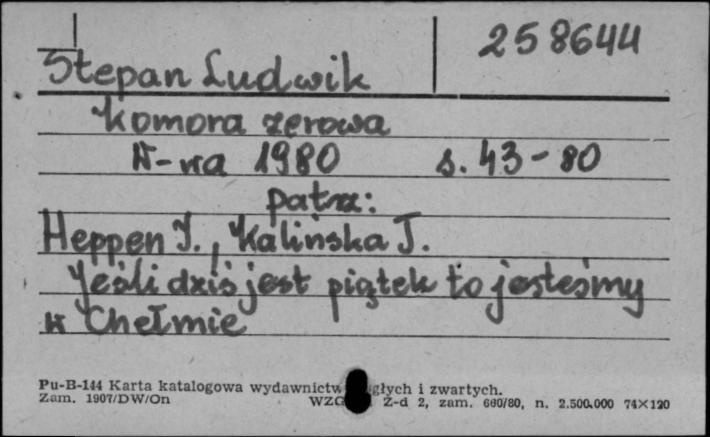 Stepan Ludwik 258644
Komora zerowa
W-wa 1980 s. 43-80
patrz:
Heppen J., Kalińska J.
Jeśli dziś jest piątek to jesteśmy
w Chełmie
Pu-B-144 Karta katalogowa wydawnictw głych i zwartych.
Zam. 1907/DW/On WZG Z-d 2, zam. 660/80, n. 2.500.000 74×120